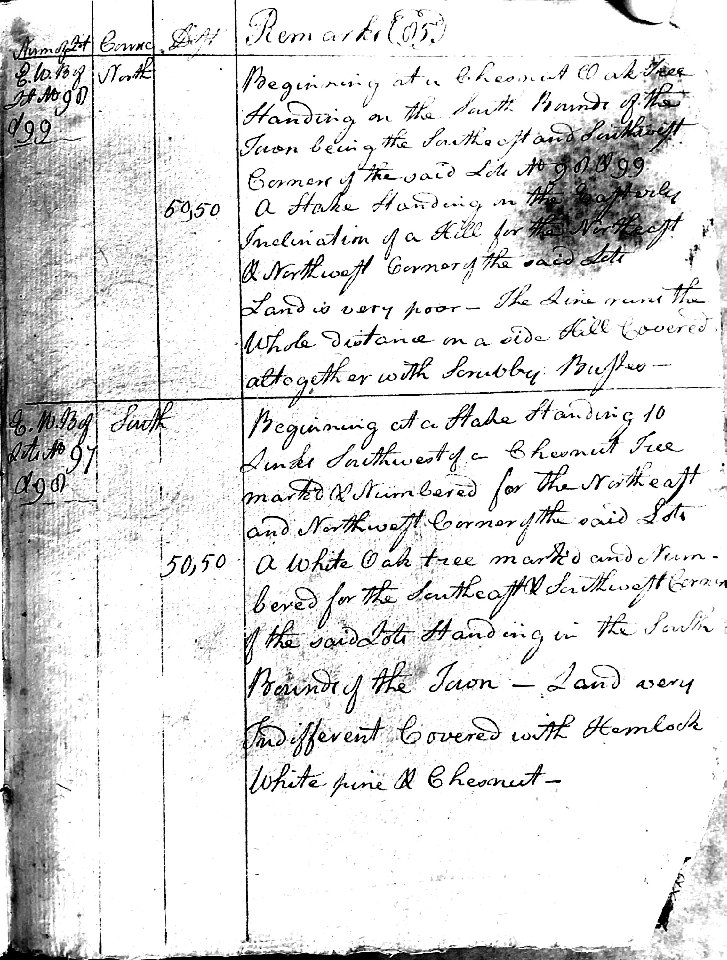 Num of Lt Cours Dist Remarks (85)
E. W. B of North Beginning at a Chesnut Oak Tree
Lt No 98 Standing on the South Bounds of the
& 99 Town being the Southeast and Southwest
Corners of the said Lots No 98 & 99
50,50 A Stake Standing on the Easterly
Inclination of a Hill for the Northeast
& Northwest Corner of the said Lots
Land is very poor – The Line runs the
Whole distance on a side Hill Covered
altogether with Scrubby Bushes –
E. W. B of South Beginning at a Stake Standing 10
Lots No 97 Links Southwest of a Chesnut Tree
& 98 markd & Numbered for the Northeast
and Northwest Corner of the said Lots
50,50 A White Oak tree mark'd and Num-
bered for the Southeast & Southwest Corner
of the said Lots Standing in the South
Bounds of the Town – Land very
Indifferent Covered with Hemlock
White pine & Chesnut –